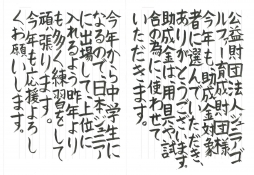 公益財団法人ジュニアゴ
ルフ育成財団様
今年も助成金対象
者に選んでいただき、
ありがとうございます。
助成金は、用具や試
合の為に使わせて
いただきます。
今年から中学生に
なるので、日本ジュニア
に出場して、上位に
入れるよう昨年より
も多く練習をして
頑張ります。
今年も応援よろし
くお願いします。